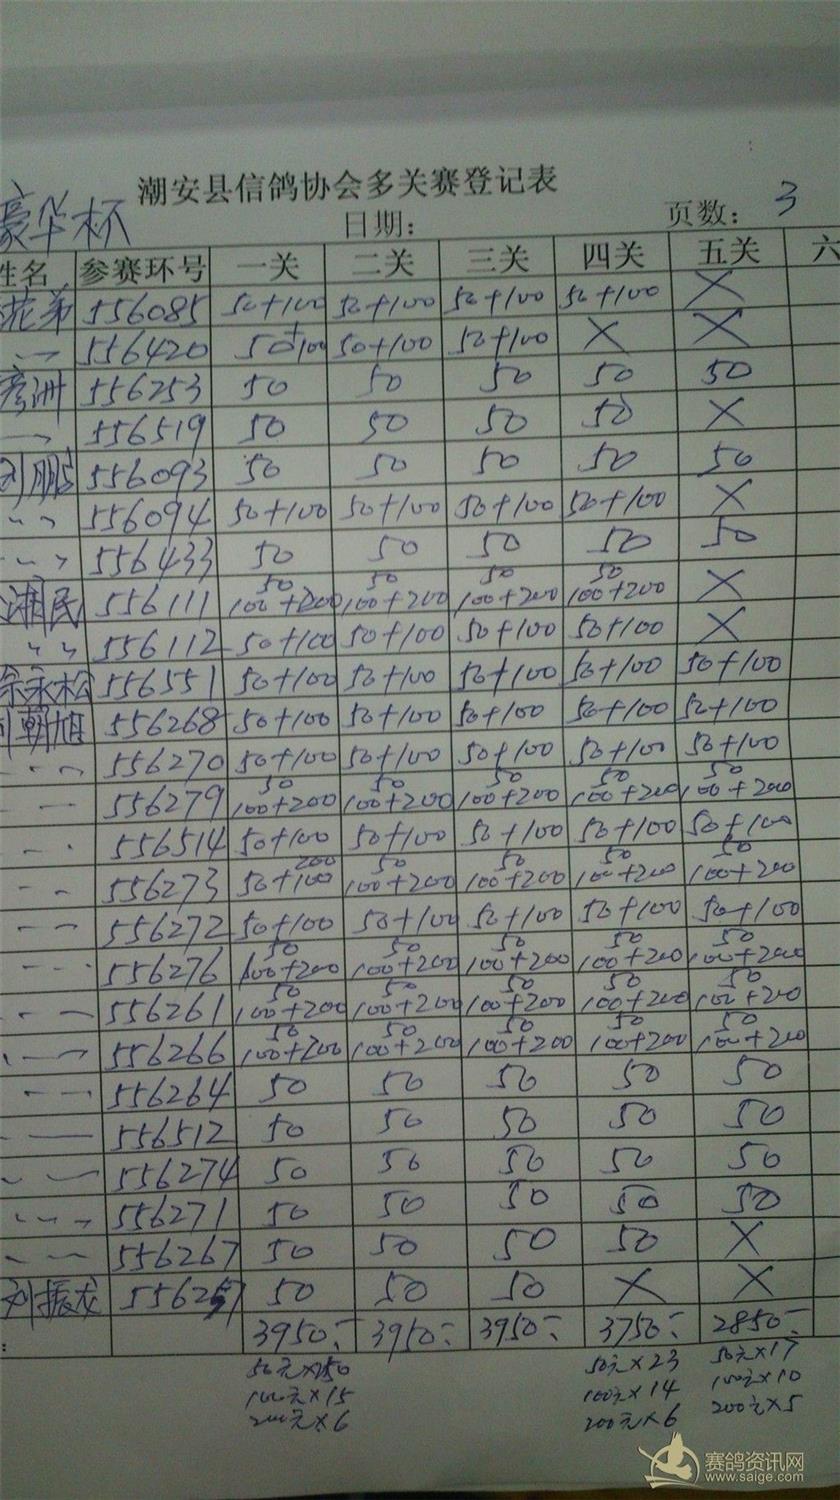 潮安县信鸽协会多关赛登记表
豪华杯 日期: 页数: 3
姓名 参赛环号 一关 二关 三关 四关 五关 六
花弟 556085 50+100 50+100 50+100 50+100 X
556420 50+100 50+100 50+100 X X
彦洲 556253 50 50 50 50 50
556519 50 50 50 50 X
刘鹏 556093 50 50 50 50 50
556094 50+100 50+100 50+100 50+100 X
556433 50 50 50 50 50
湘民 556111 50 100+200 50 100+200 50 100+200 50 100+200 X
556112 50+100 50+100 50+100 50+100 X
余永松 556551 50+100 50+100 50+100 50+100 50+100
朝旭 556268 50+100 50+100 50+100 50+100 50+100
556270 50+100 50+100 50+100 50+100 50+100
556279 50 100+200 50 100+200 50 100+200 50 100+200 50 100+200
556514 50+100 50+100 50+100 50+100 50+100
556273 50+100 200 50 100+200 50 100+200 50 100+200 50 100+200
556272 50+100 50+100 50+100 50+100 50+100
556276 50 100+200 50 100+200 50 100+200 50 100+200 50 100+200
556261 50 100+200 50 100+200 50 100+200 50 100+200 50 100+200
556266 50 100+200 50 100+200 50 100+200 50 100+200 50 100+200
556264 50 50 50 50 50
556512 50 50 50 50 50
556274 50 50 50 50 50
556271 50 50 50 50 50
556267 50 50 50 50 X
刘振龙 556257 50 50 50 X X
: 3950:- 3950:- 3950:- 3750:- 2850:-
50元×23 50元×17
100元×15 100元×14 100元×10
200元×6 200元×6 200元×5
赛鸽资讯网
www.saige.com